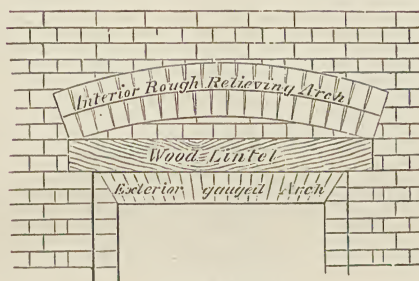 Interior Rough Relieving Arch
Wood Lintel
Exterior gauged Arch